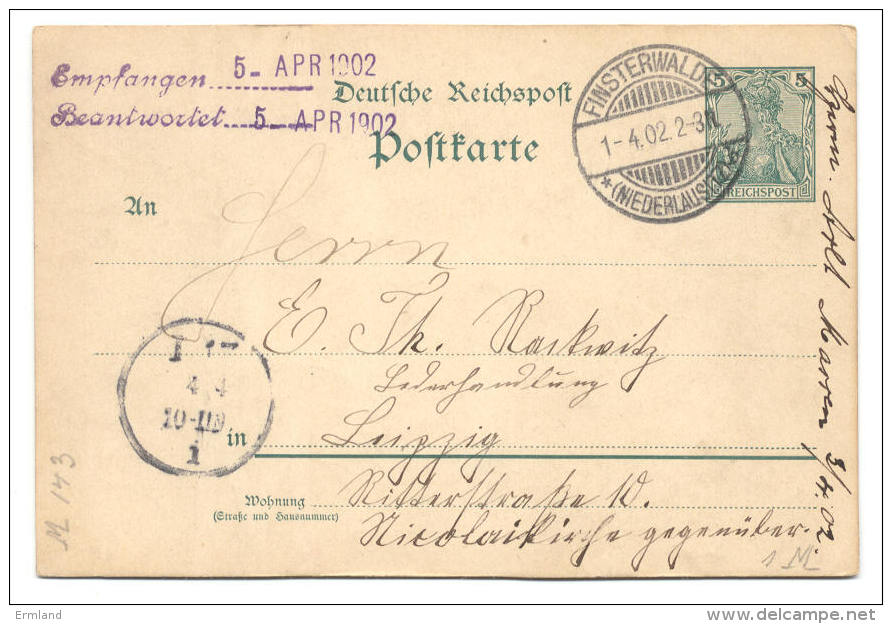 Empfangen 5- APR 1902
Beantwortet 5- APR 1902
Deutsche Reichspost
Postkarte
FINSTERWALDE
1-4.02.2-3N.
*(NIEDERLAUSITZ)*
5 5
REICHSPOST
An
Herrn
E. Th. Rackwitz
Lederhandlung
in Leipzig
Wohnung
(Straße und Hausnummer)
Ritterstraße 10.
Nicolaikirche gegenüber.
Herm. Arlt Massen 3/4.02.
4 4
10-11N
1
M 143
1 M
Ermland
www.delcampe.net